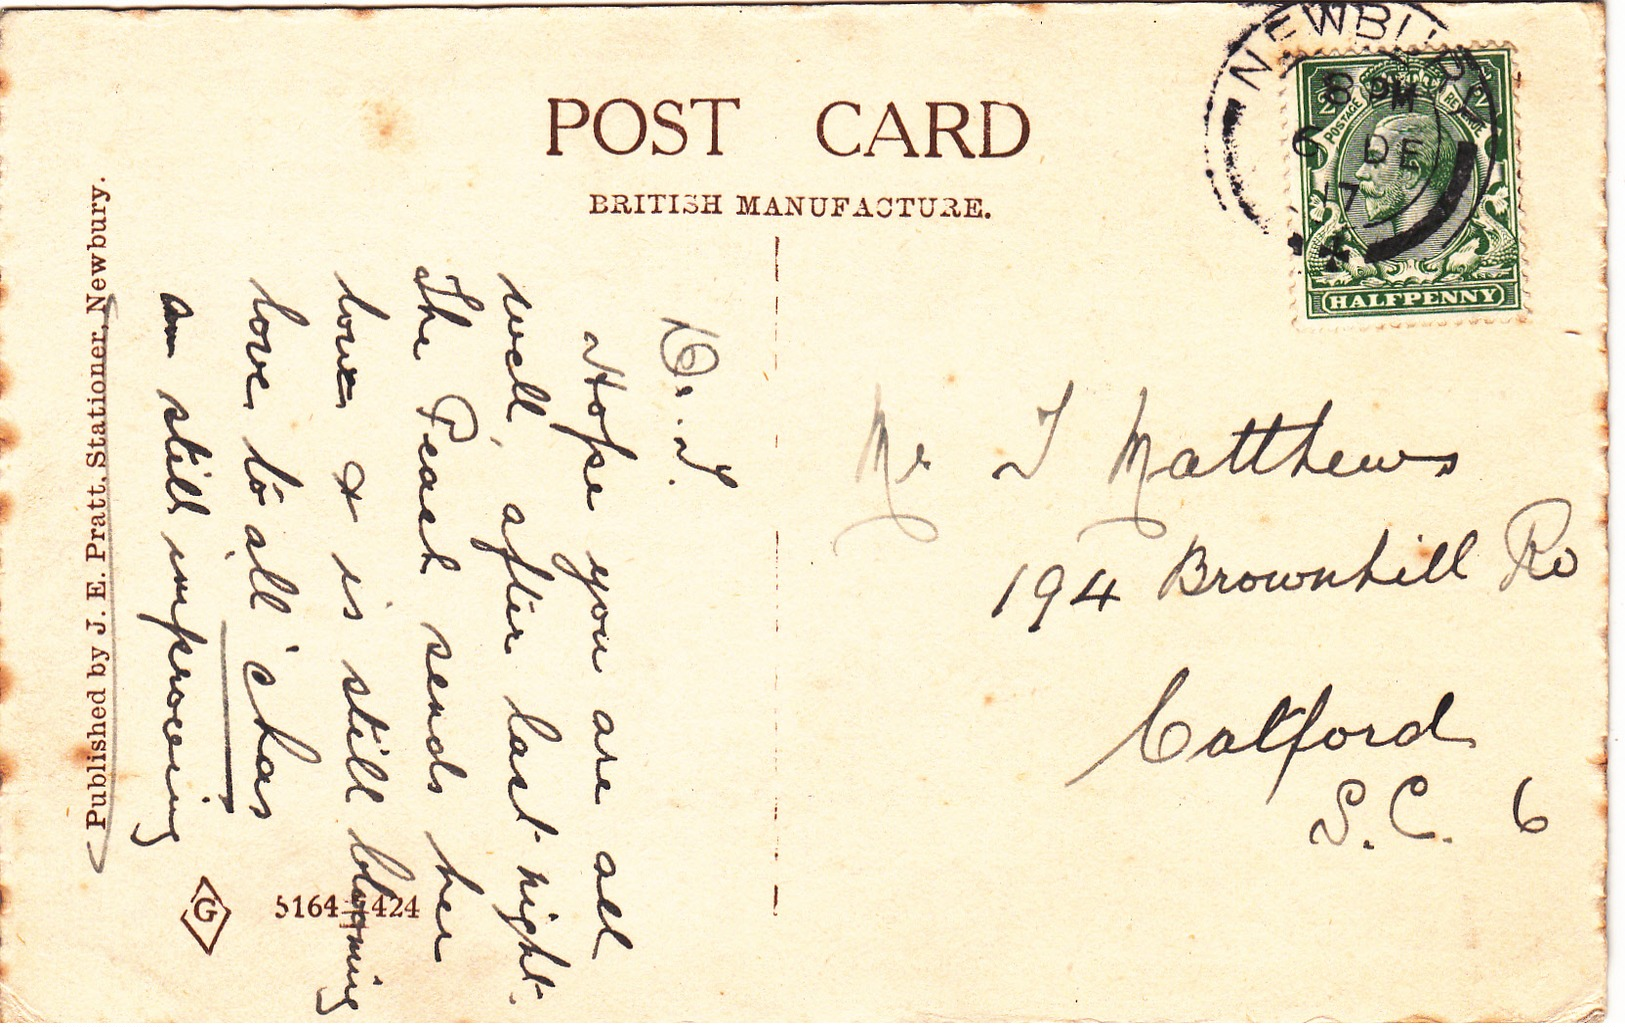 POST CARD
BRITISH MANUFACTURE.
NEWBURY
8 PM
6 DE
17
POSTAGE REVENUE
HALFPENNY
D.. J.
Hope you are all
well, after last night.
The Peach sends her
love & is still blooming
love to all 'chas
am still improving
Mr J Matthews
194 Brownhill Rd
Catford
S.E. 6
Published by J. E. Pratt, Stationer, Newbury.
G
5164-1424